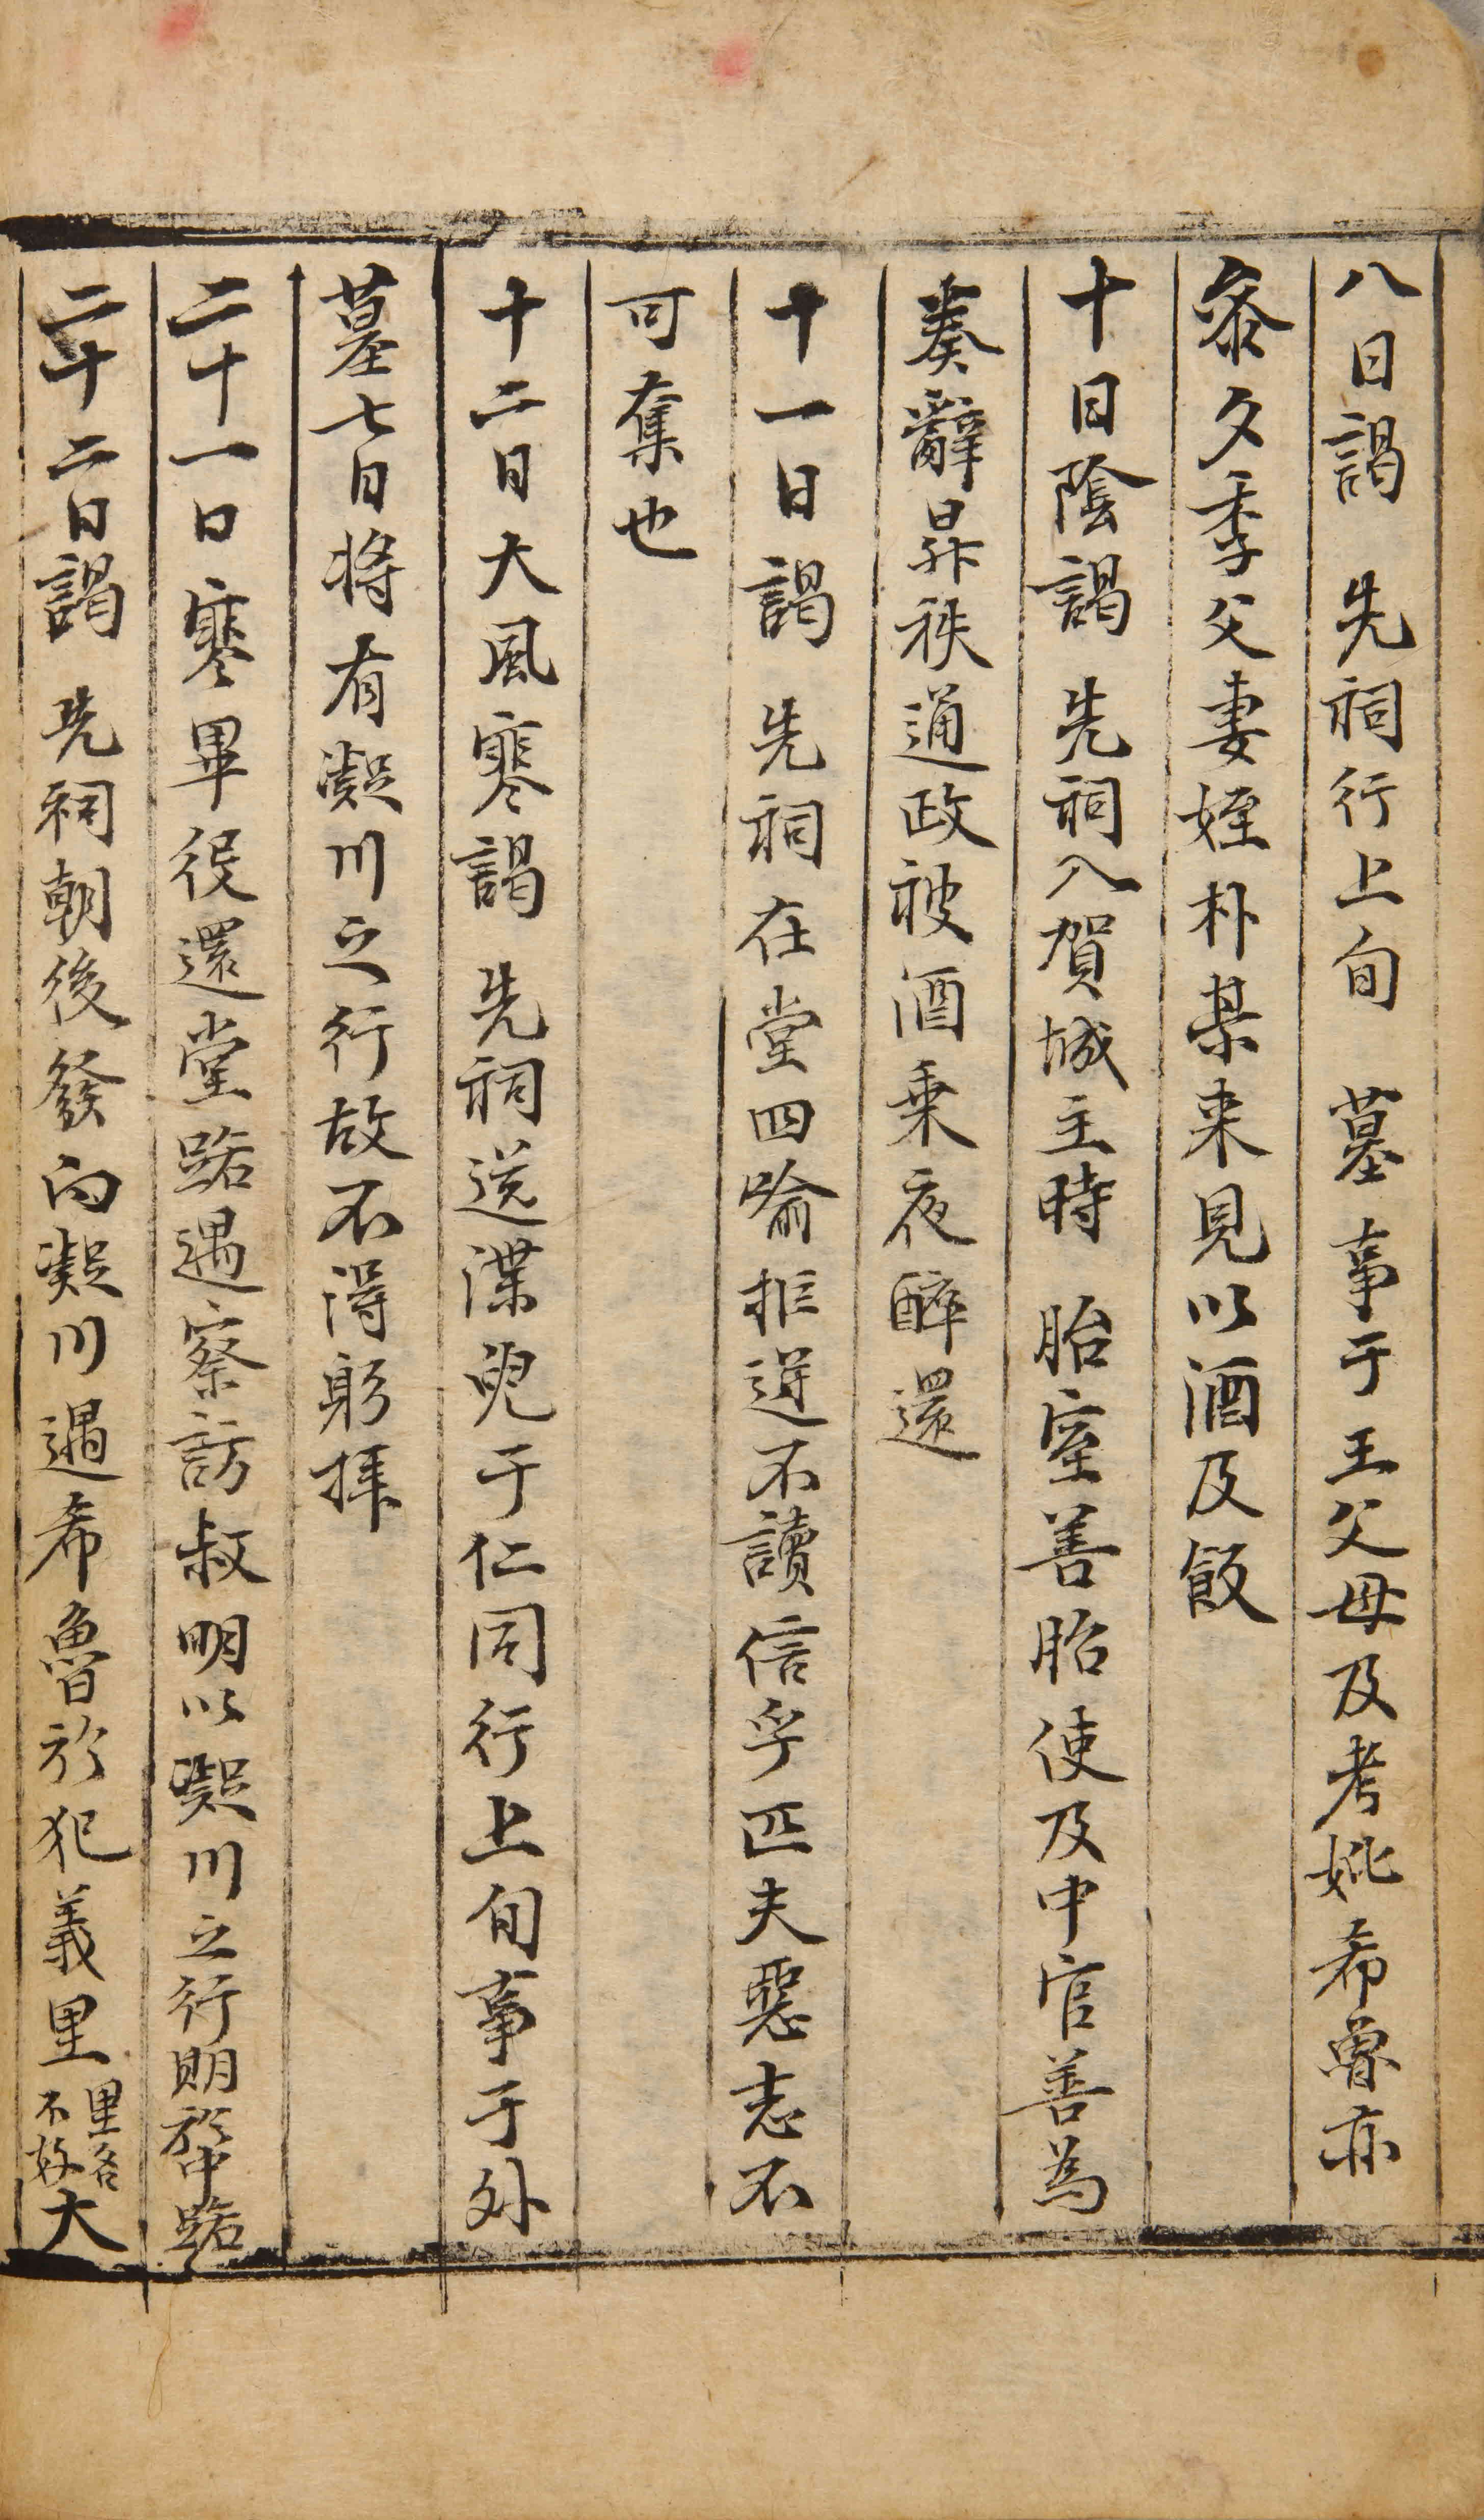 八日謁 先祠行上旬 墓事于王父母及考妣希魯亦
叅夕季父妻姪朴某来見以酒及飯
十日陰謁 先祠入賀城主時 胎室善胎使及中官善為
奏辭昇秩通政被酒乗夜醉還
十一日謁 先祠在堂四喻拒逆不讀信乎匹夫惡志不
可奪也
十二日大風寒謁 先祠送渫兒于仁同行上旬事于外
墓七日将有凝川之行故不得躬拝
二十一日寒畢役還堂路遇察訪叔明以凝川之行期於中路
二十二日謁 先祠朝後發向凝川遇希魯於犯義里里名不好大